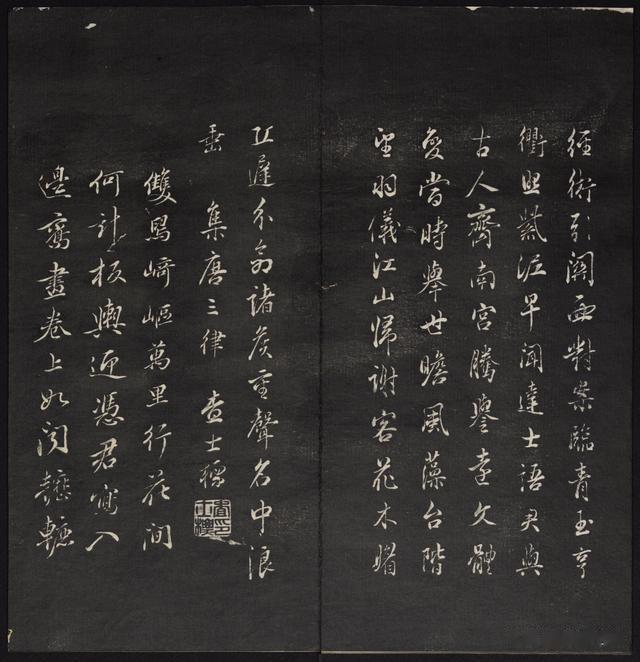 經術引關西對案臨青玉亨
衢照紫泥早聞達士語君與
古人齊南宮騰譽達文體
變當時舉世瞻風藻台階
望羽儀江山歸謝客花木媚
丘遲分勿諸侯重聲名中浪
垂　集唐三律　查士標
雙鳧崎嶇萬里行花間
何計板輿迎憑君寫入
邊鸞畫卷上如聞轆轤